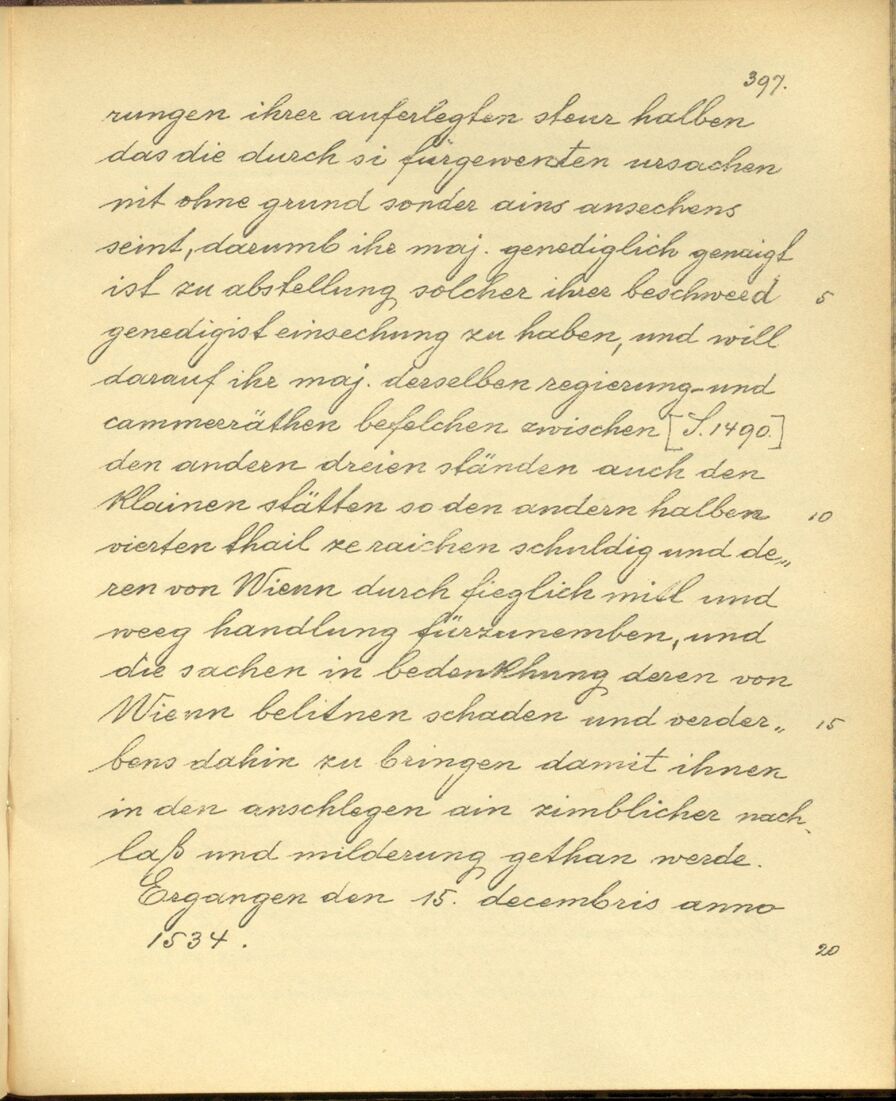 397.
rungen ihrer auferlegten steur halben
das die durch si fürgewenten ursachen
nit ohne grund sonder ains ansechens
seint, darumb ihr maj. genediglich genaigt
ist zu abstellung solcher ihrer beschweed 5
genedigist einsechung zu haben, und will
darauf ihr maj. derselben regierung- und
cammerräthen befelchen zwischen [S. 1490.]
den andern dreien ständen auch den
klainen stätten so den andern halben 10
vierten thail ze raichen schuldig und de„
ren von Wienn durch fieglich mitl und
weeg handlung fürzunemben, und
die sachen in bedenkhung deren von
Wienn belitnen schaden und verder„ 15
bens dahin zu bringen damit ihnen
in den anschlegen ain zimblicher nach-
laß und milderung gethan werde.
Ergangen den 15. decembris anno
1534. 20